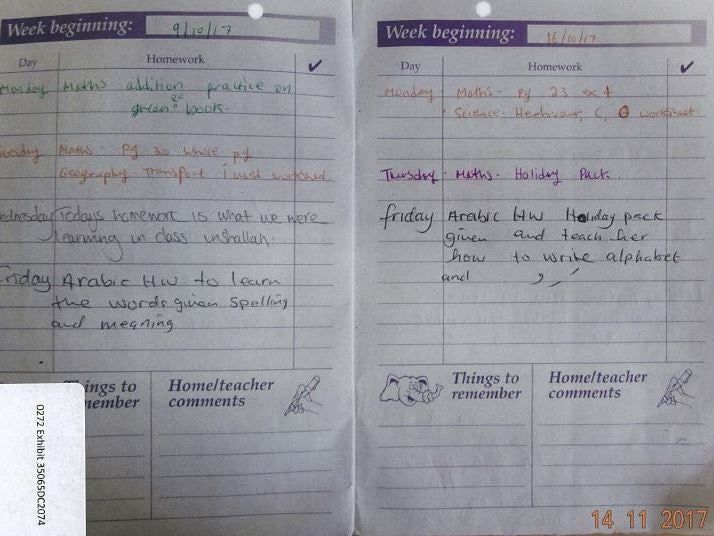 Week beginning: 9/10/17
Day Homework ✓
Monday Maths addition practice on
green ex book.
Tuesday Maths - Pg 20 whole pg
Geography - Transport i used worksheet
Wednesday Todays homework is what we were
learning in class inshallah.
Friday Arabic HW to learn
the words given spelling
and meaning
Things to remember
Home/teacher comments
0272 Exhibit 35065DC2074
Week beginning: 16/10/17
Day Homework ✓
Monday Maths - pg 23 ex 4
Science - C, worksheet
Thursday - Maths - Holiday Pack.
friday Arabic HW Holiday pack
given and teach her
how to write alphabet
and
Things to remember
Home/teacher comments
14 11 2017